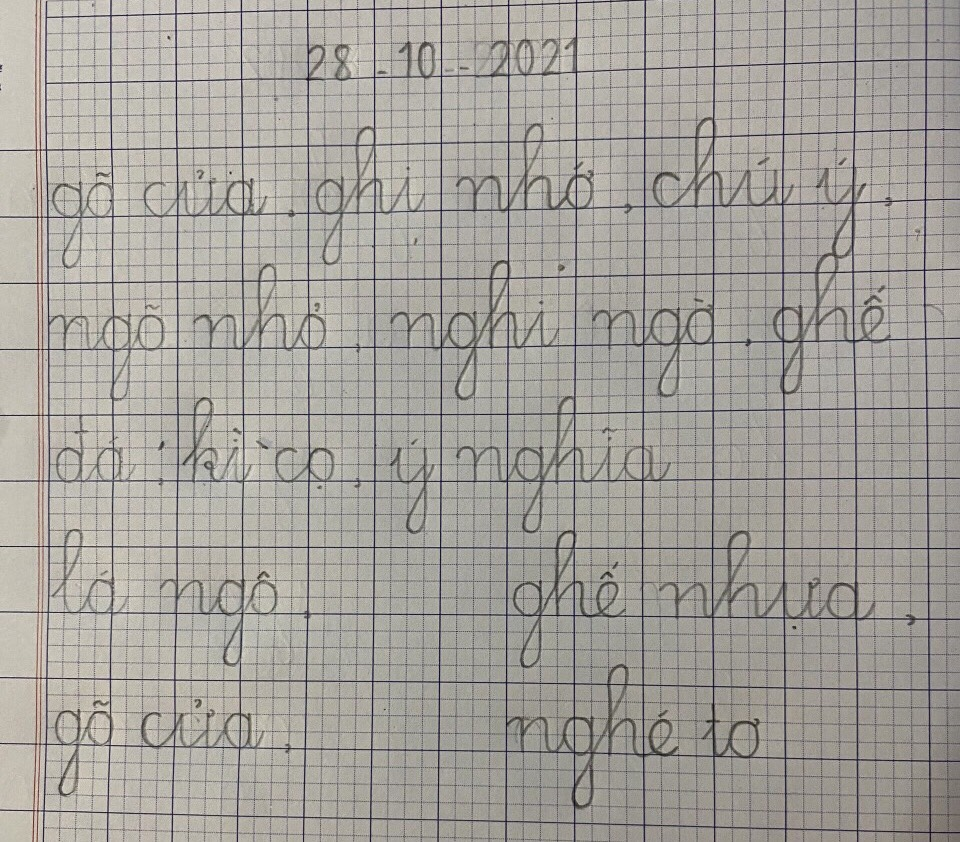 28-10-2021
gõ cửa, ghi nhớ, chú ý,
ngõ nhỏ, nghi ngờ, ghế
đá, kì cọ, ý nghĩa
lá ngô, ghế nhựa,
gõ cửa, nghé to